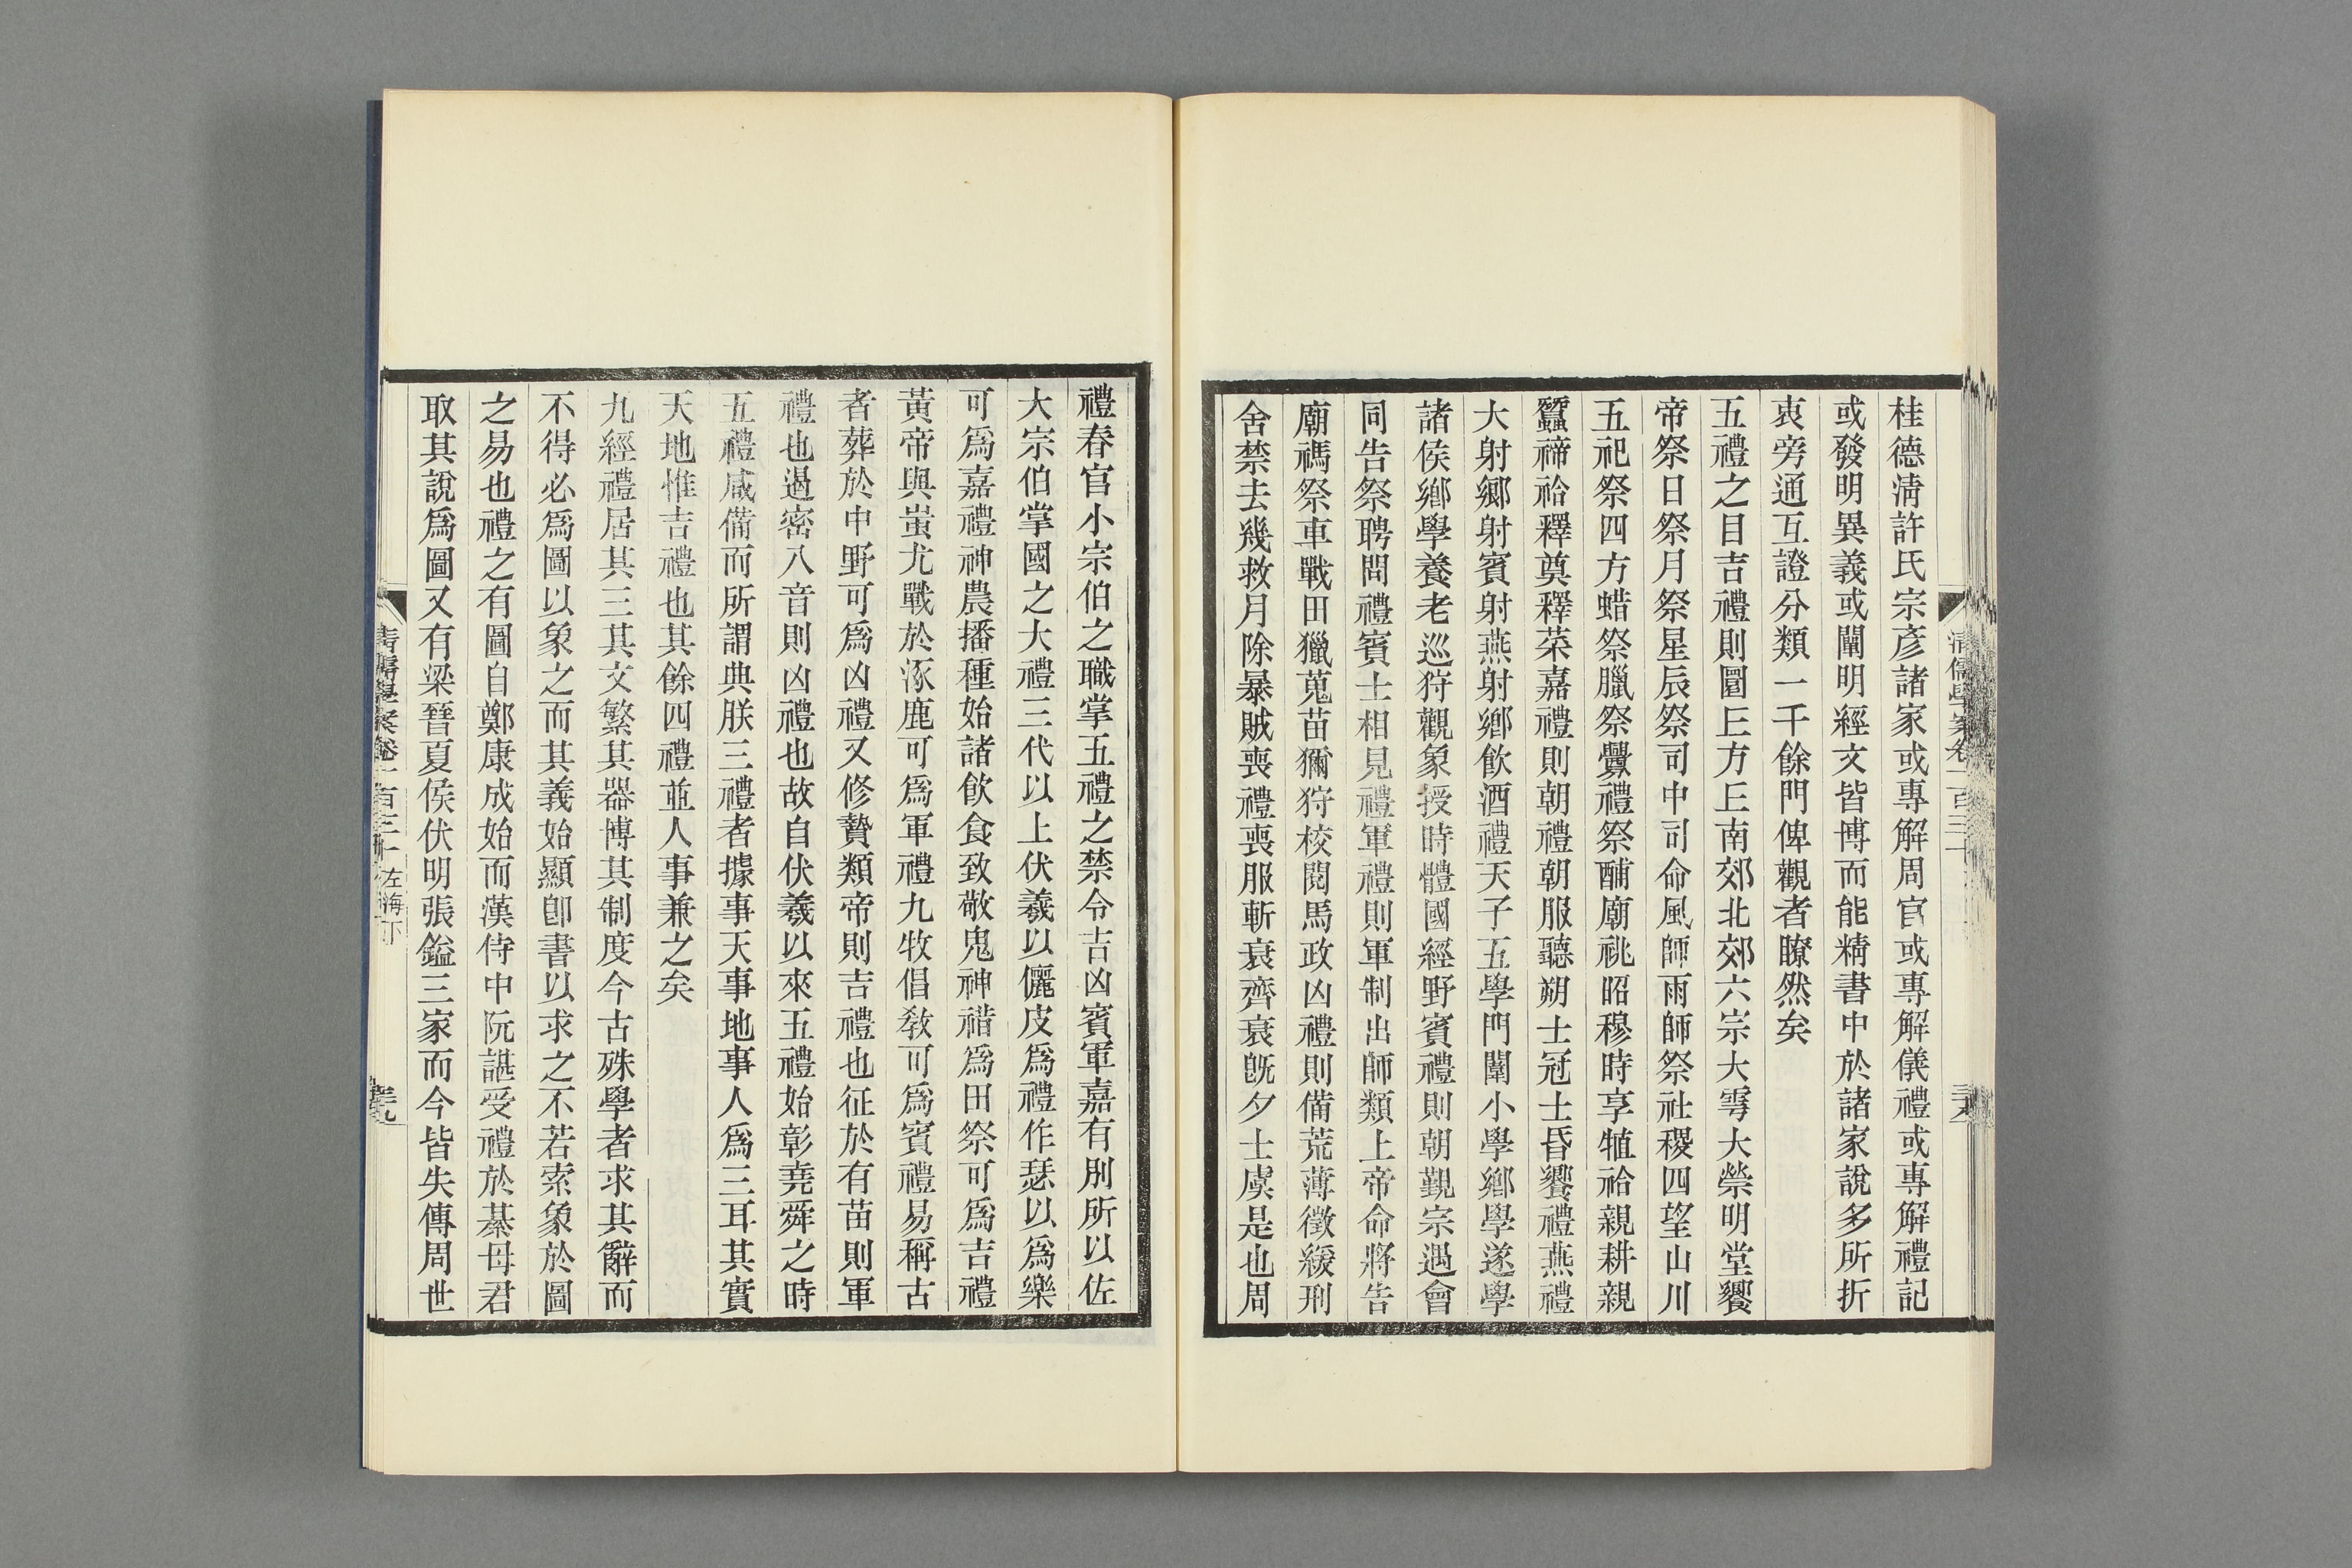 桂德淸許氏宗彥諸家或專解周官或專解儀禮或專解禮記
或發明異義或闡明經文皆博而能精書中於諸家說多所折
衷旁通互證分類一千餘門俾觀者瞭然矣
五禮之目吉禮則圜丘方丘南郊北郊六宗大雩大禜明堂饗
帝祭日祭月祭星辰祭司中司命風師雨師祭社稷四望山川
五祀祭四方蜡祭臘祭釁禮祭酺廟祧昭穆時享犆祫親耕親
蠶禘祫釋奠釋菜嘉禮則朝禮朝服聽朔士冠士昏饗禮燕禮
大射鄉射賓射燕射鄉飮酒禮天子五學門闈小學鄉學遂學
諸侯鄉學養老巡狩觀象授時體國經野賓禮則朝覲宗遇會
同告祭聘問禮賓士相見禮軍禮則軍制出師類上帝命將告
廟禡祭車戰田獵蒐苗獮狩校閱馬政凶禮則備荒薄徵緩刑
舍禁去幾救月除暴賊喪禮喪服斬衰齊衰旣夕士虞是也周
清儒學案卷一百三十
三十八
禮春官小宗伯之職掌五禮之禁令吉凶賓軍嘉有別所以佐
大宗伯掌國之大禮三代以上伏羲以儷皮爲禮作瑟以爲樂
可爲嘉禮神農播種始諸飮食致敬鬼神䄍爲田祭可爲吉禮
黃帝與蚩尤戰於涿鹿可爲軍禮九牧倡敎可爲賓禮易稱古
者葬於中野可爲凶禮又修贄類帝則吉禮也征於有苗則軍
禮也遏密八音則凶禮也故自伏羲以來五禮始彰堯舜之時
五禮咸備而所謂典朕三禮者據事天事地事人爲三耳其實
天地惟吉禮也其餘四禮並人事兼之矣
九經禮居其三其文繁其器博其制度今古殊學者求其辭而
不得必爲圖以象之而其義始顯卽書以求之不若索象於圖
之易也禮之有圖自鄭康成始而漢侍中阮諶受禮於綦母君
取其說爲圖又有梁晉夏侯伏明張鎰三家而今皆失傳周世
清儒學案卷一百三十 左海下
三十九